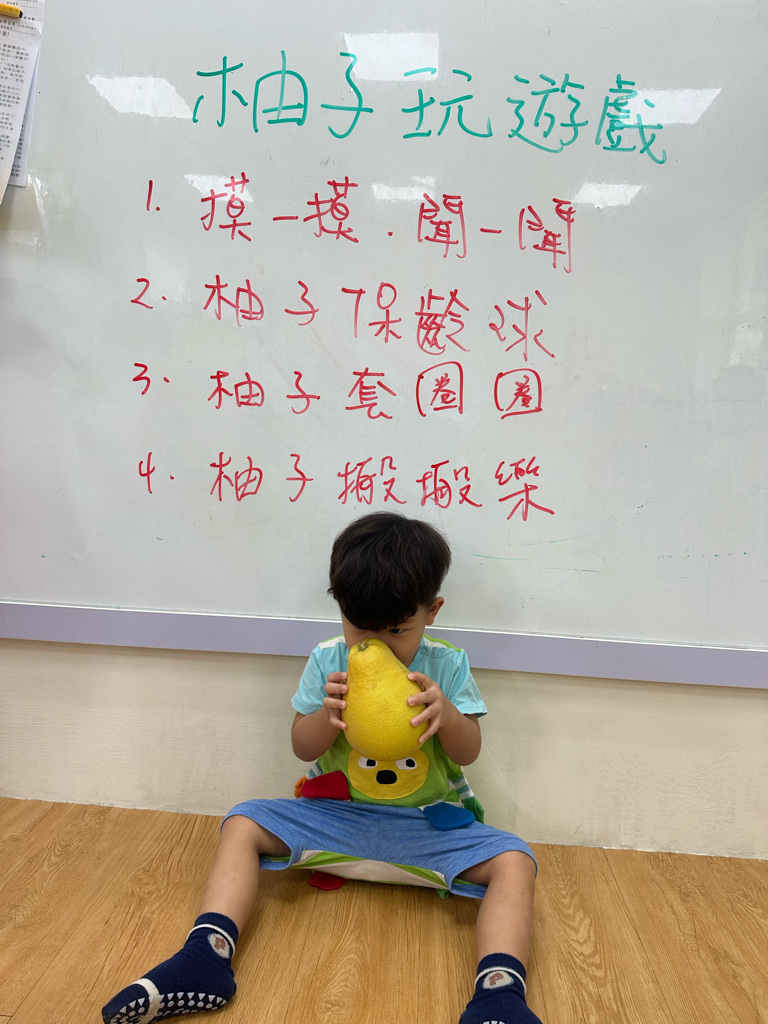 柚子玩遊戲
1. 摸一摸.聞一聞
2. 柚子保齡球
3. 柚子套圈圈
4. 柚子搬搬樂